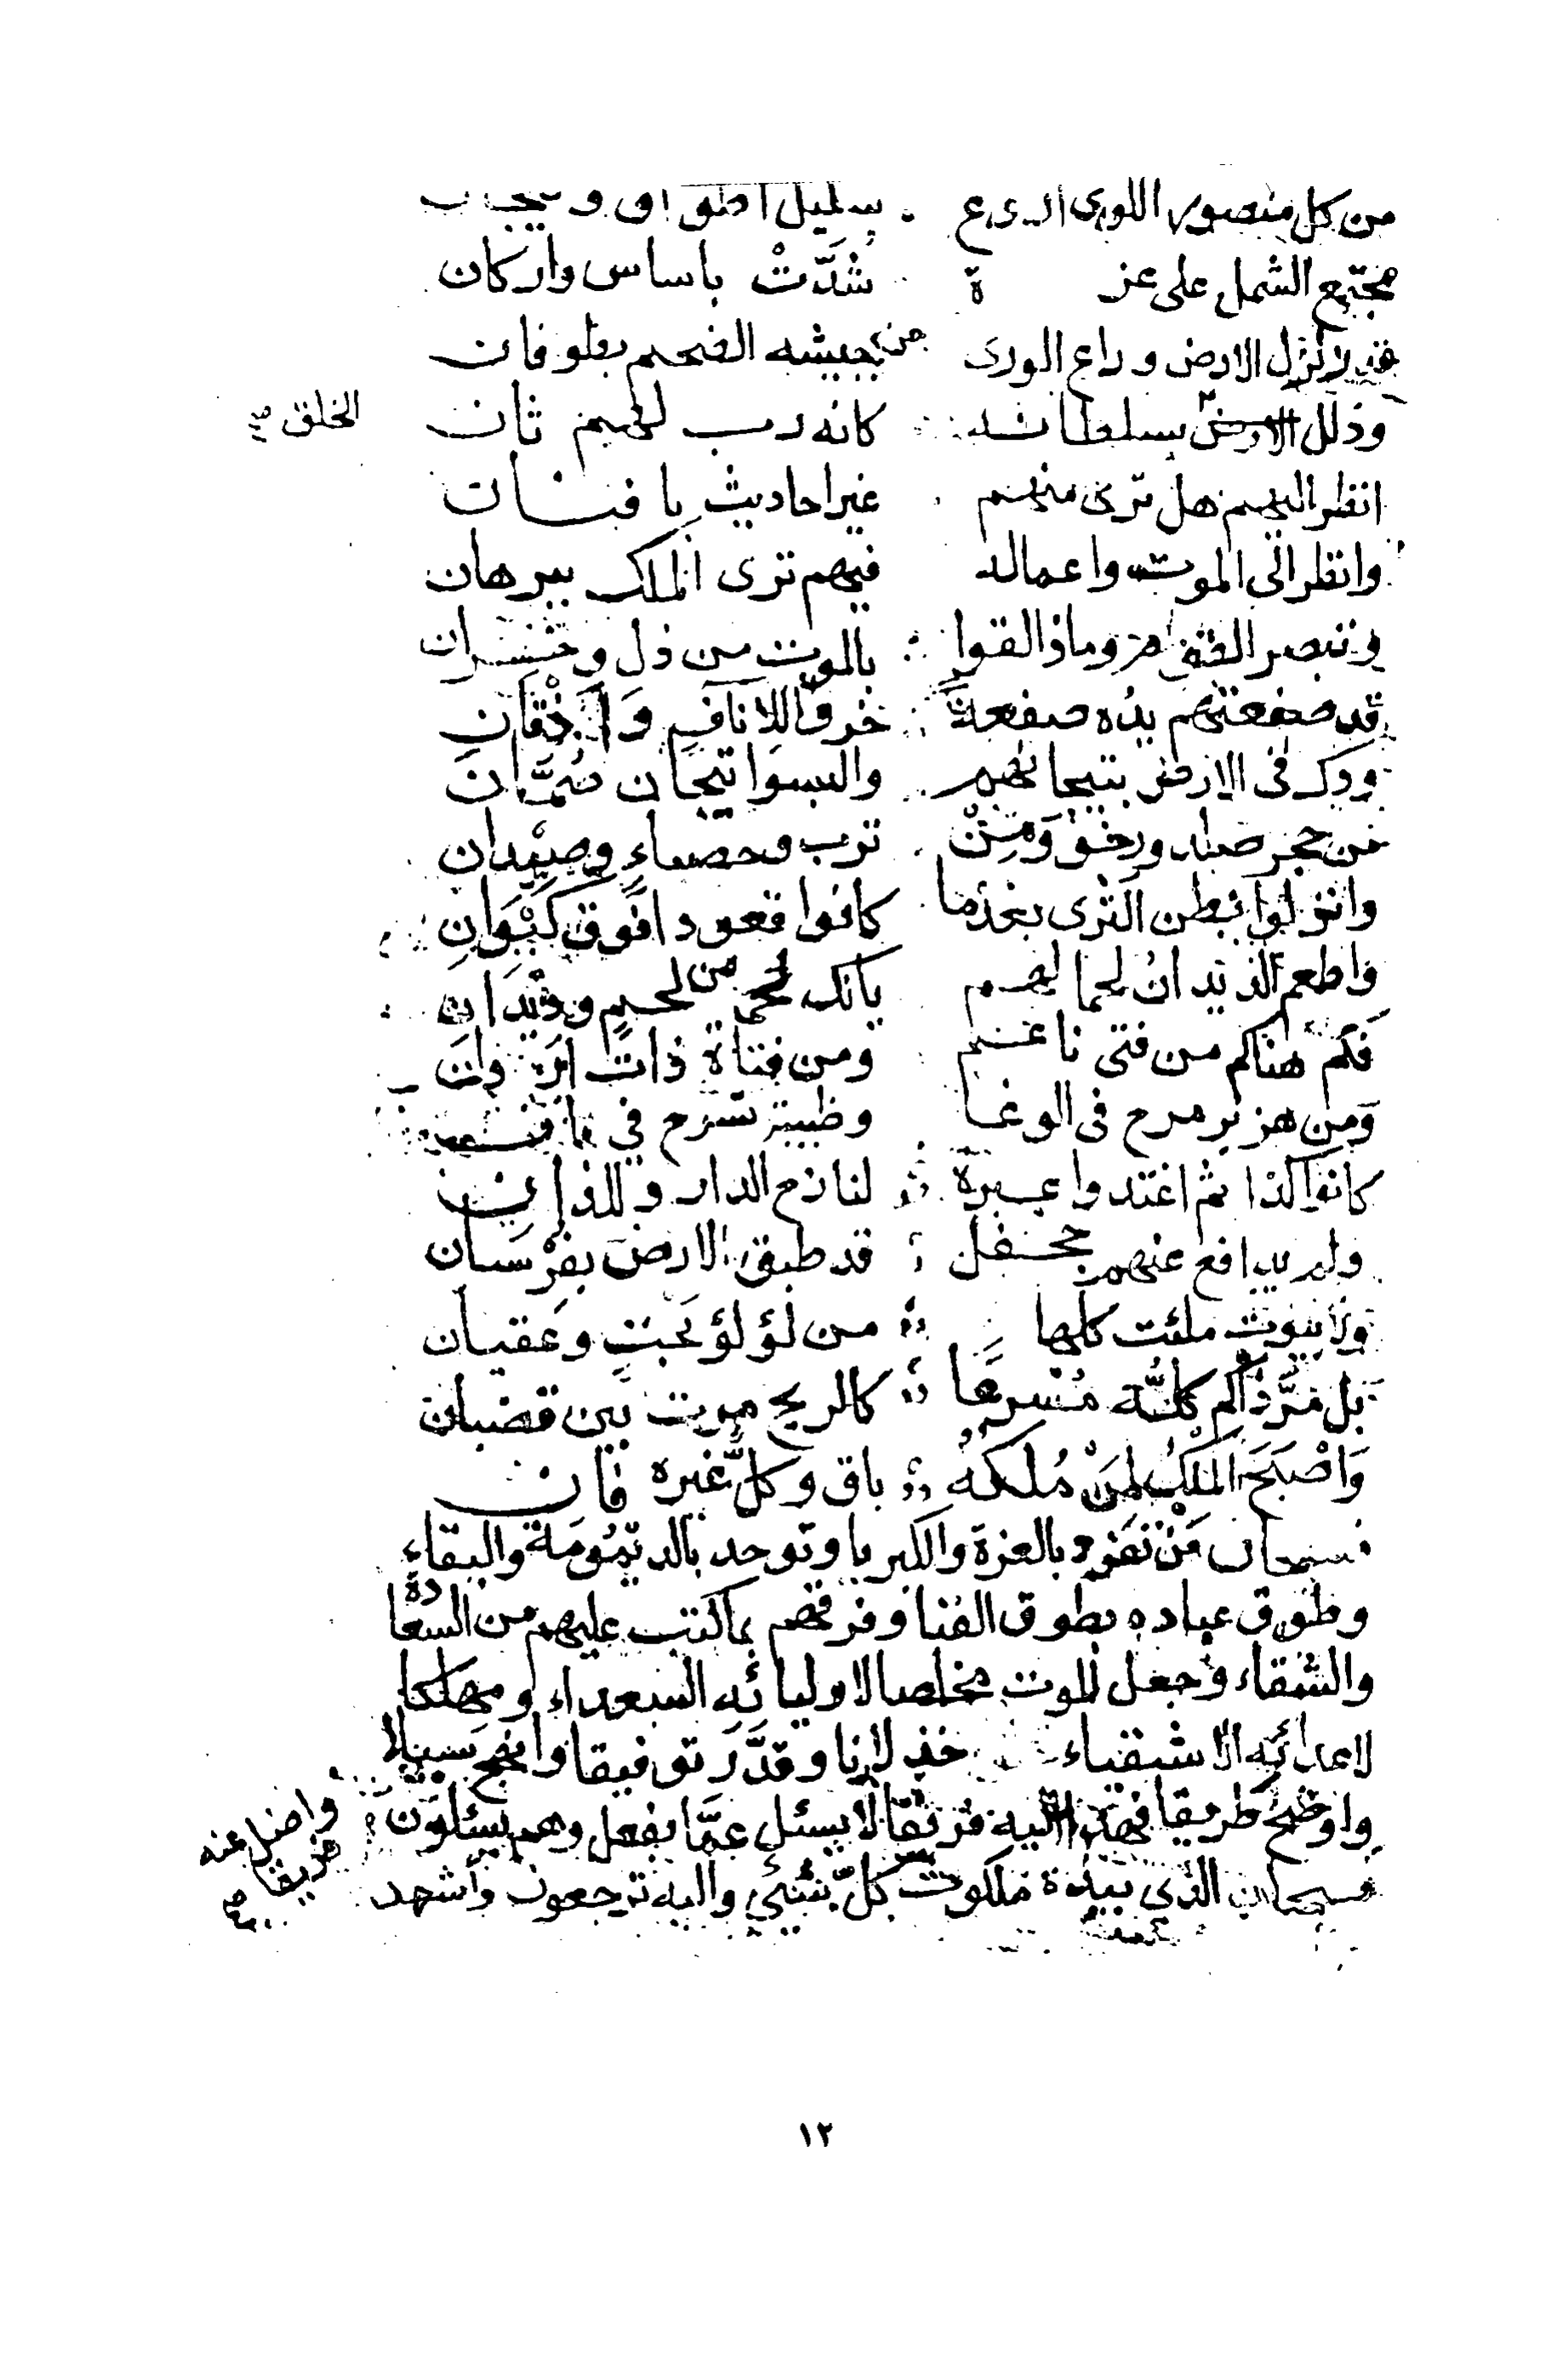 من كل منصور اللوى
مجتمع الشمل على عزة شدّت باساس واركان
قد زلزل الارض وراع الورى من جيشه الضخم بطوفان
وذلل الارض بسلطانه كانه رب لهم ثان
الخلق صح
انظر اليهم هل ترى منهم غير احاديث يا فنان
وانظر الى الموت واعماله فيهم ترى الملك ببرهان
وتبصر القهر وماذا لقوا بالموت من ذل وخسران
قد صفعتهم يده صفعة خرو للاناف واذقان
ودك فى الارض بتيجانهم والبسوا تيجان صمّان
من حجر صلد ورخو ومن ترب وحصباء وصيدان
وانزلوا بطن الثرى بعدما كانوا قعودا فوق كيوان
واطعم الديدان لحما لهم يا لك لحما من لحيم وديدان
فكم هناكم من فتى ناعم ومن فتاة ذات
ومن هزبر مرح فى الوغا وظبية تسرح في
كانوا كذا ثم اغتدوا عبرة لنازح الدار وللدانى
ولم يدافع عنهم جحفل قد طبق الارض بفرسان
ولا بيوت ملئت كلها من لؤلؤ بحت وعقيان
بل مرّ ذاكم كلّه مسرعا كالريح مرت بين قضبان
وَاصْبَحَ الملْكُ لِمَنْ مُلكه باق وكلّ غيره فان
فسبحان مَنْ تفرد بالعزة والكبريا وتوحد بالديمومة والبقاء
وطوق عباده بطوق الفنا وفرقهم بما كتب عليهم من السعادة
والشقاء وجعل الموت مخلصا لاوليائه السعداء ومهلكا
لاعدائه الاشقياء خذلانا وقدّر توفيقا وانهج سبيلا
واوضح طريقا فهدى اليه فريقا لا يسئل عمّا يفعل وهم يسئلون
واضل عنه فريقا صح
فسبحان الذي بيده ملكوت كلّ شئ واليه ترجعون واشهد
١٢